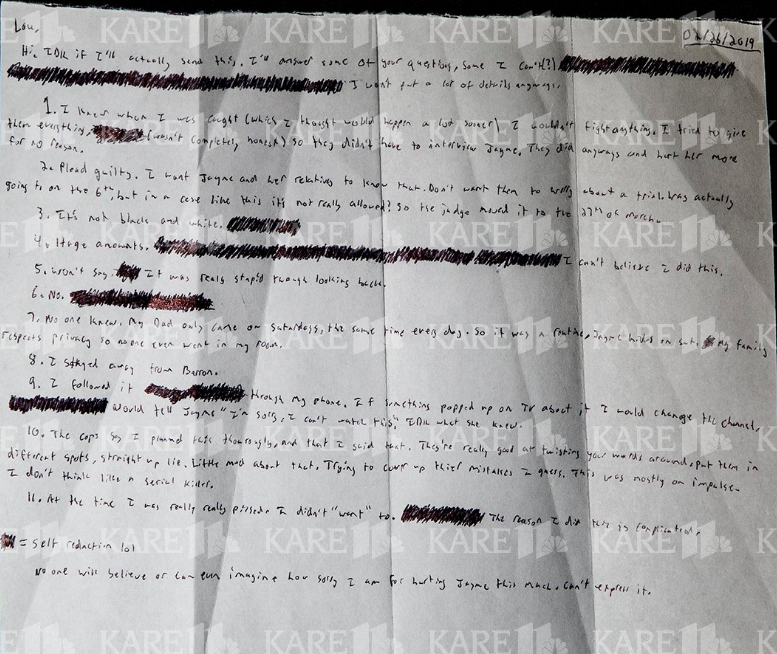 02/26/2019
Lou,
Hi. IDK if I'll actually send this. I'll answer some of your questions, some I can't(?)
I wont put a lot of details anyways.
1. I knew when I was caught (which I thought would happen a lot sooner), I wouldn't fight anything. I tried to give
them everything, (wasn't completely honest) so they didn't have to interview Jayme. They did anyways and hurt her more
for no reason.
2. Plead guilty. I want Jayme and her relatives to know that. Don't want them to worry about a trial. Was actually
going to on the 6th, but in a case like this it's not really allowed? So the judge moved it to the 27th of march.
3. It's not black and white.
4. Huge amounts. I can't believe I did this.
5. Won't say. It was really stupid though looking back.
6. No.
7. No one knew. My Dad only came on saturdays, the same time every day. So it was a routine, Jayme hides on sat. My family
respects privacy so no one even went in my room.
8. I stayed away from Barron.
9. I followed it through my phone. If something popped up on TV about it I would change the channel,
would tell Jayme "I'm sorry, I can't watch this," IDK what she knew.
10. The cops say I planned this thouroughly, and that I said that. They're really good at twisting your words around, put them in
different spots, straight up lie. Little mad about that. Trying to cover up thier mistakes I guess. This was mostly on impulse.
I don't think like a serial killer.
11. At the time I was really really pissed. I didn't "want" to. The reason I did this is complicated.
= self redaction lol
No one will believe or can even imagine how sorry I am for hurting Jayme this much. Can't express it.
KARE 11